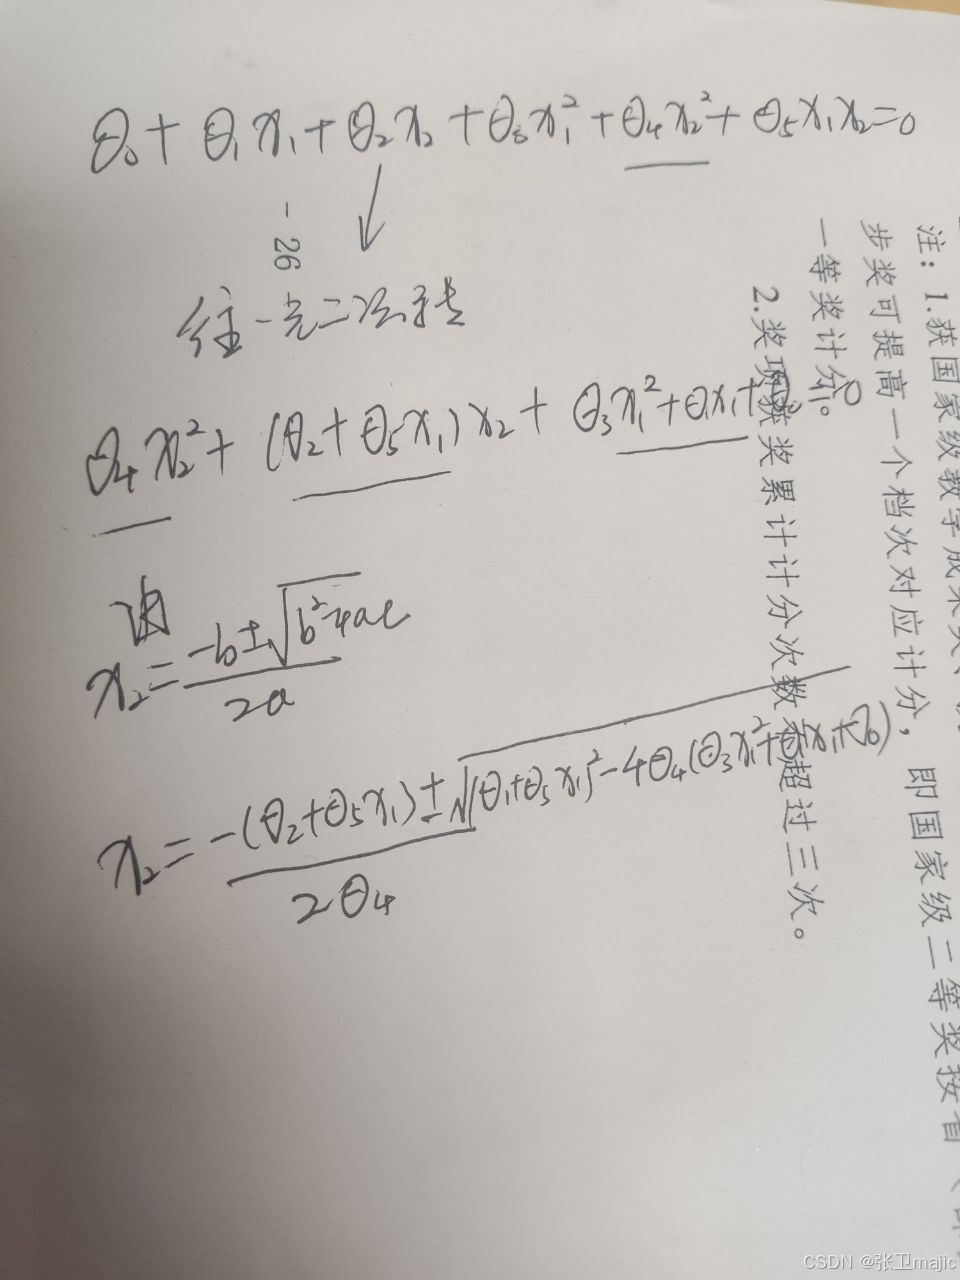 θ₀ + θ₁x₁ + θ₂x₂ + θ₃x₁² + θ₄x₂² + θ₅x₁x₂ = 0
往一元二次转
θ₄x₂² + (θ₂ + θ₅x₁)x₂ + θ₃x₁² + θ₁x₁ + θ₀ = 0
由
x₂ = (-b ± √(b²-4ac)) / 2a
x₂ = (-(θ₂+θ₅x₁) ± √((θ₁+θ₅x₁)² - 4θ₄(θ₃x₁²+θ₁x₁+θ₀))) / 2θ₄
- 26
注：1.获国家级教学成果奖、
步奖可提高一个档次对应计分，即国家级二等奖按省
一等奖计分。
2.奖项获奖累计计分次数不超过三次。
CSDN @张卫majic